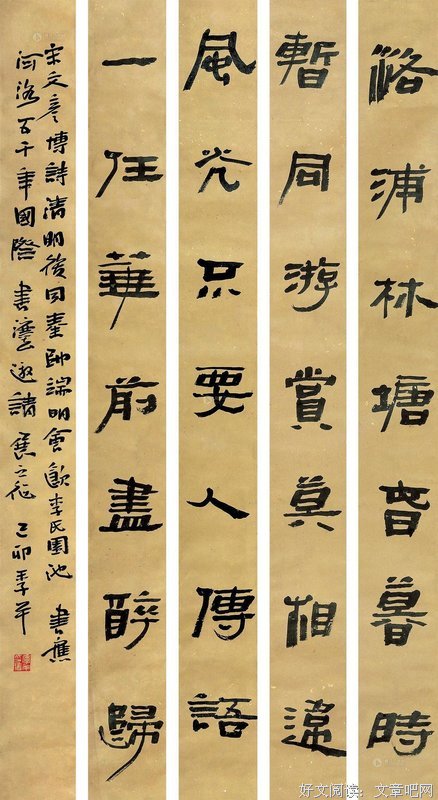 洛浦林塘春暮時
暫同游賞莫相違
風光只要人傳語
一任華前盡醉歸
宋文彦博詩清明後同秦帥端明會飲李氏園池 書應
河洛百千年國際書灋邀請展之徵 己卯
好文阅读：文章吧网